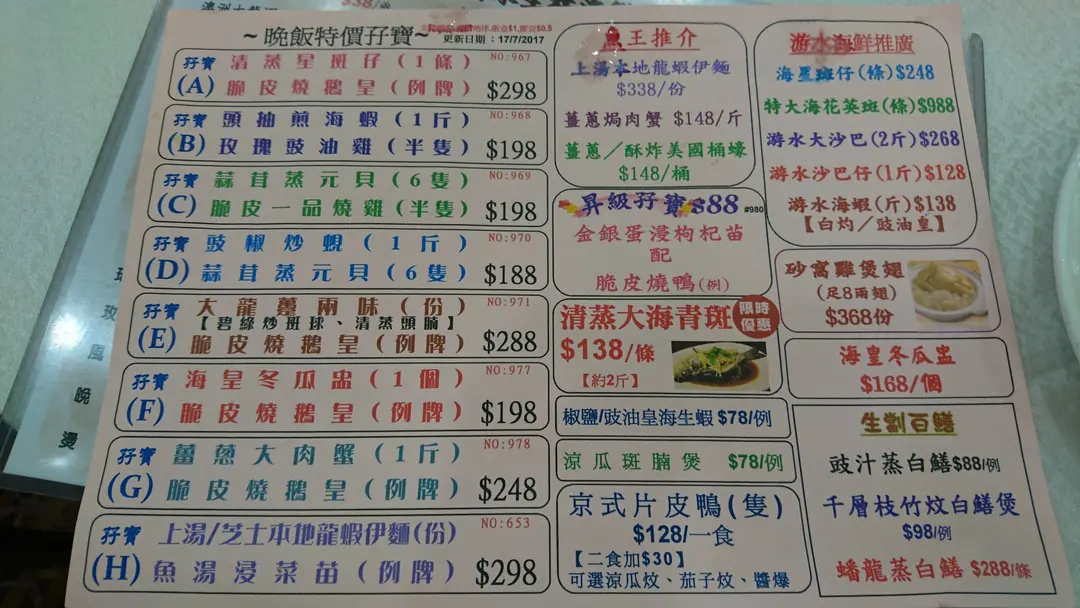 ~晚飯特價孖寶~
更新日期：17/7/2017
孖寶 清蒸星斑仔(1條) NO:967
(A) 脆皮燒鵝皇(例牌) $298
孖寶 頭抽煎海蝦(1斤) NO:968
(B) 玫瑰豉油雞(半隻) $198
孖寶 蒜茸蒸元貝(6隻) NO:969
(C) 脆皮一品燒雞(半隻) $198
孖寶 豉椒炒蜆(1斤) NO:970
(D) 蒜茸蒸元貝(6隻) $188
孖寶 大龍躉兩味(份) NO:971
【碧綠炒斑球、清蒸頭腩】
(E) 脆皮燒鵝皇(例牌) $288
孖寶 海皇冬瓜盅(1個) NO:977
(F) 脆皮燒鵝皇(例牌) $198
孖寶 薑蔥大肉蟹(1斤) NO:978
(G) 脆皮燒鵝皇(例牌) $248
孖寶 上湯/芝士本地龍蝦伊麵(份) NO:653
(H) 魚湯浸菜苗(例牌) $298
魚王推介
上湯本地龍蝦伊麵
$338/份
薑蔥焗肉蟹 $148/斤
薑蔥／酥炸美國桶蠔
$148/桶
昇級孖寶 $88 #980
金銀蛋浸枸杞苗
配
脆皮燒鴨(例)
清蒸大海青斑
限時優惠
$138/條
【約2斤】
椒鹽/豉油皇海生蝦 $78/例
涼瓜斑腩煲 $78/例
京式片皮鴨(隻)
$128/一食
【二食加$30】
可選涼瓜炆、茄子炆、醬爆
游水海鮮推廣
海星斑仔(條)$248
特大海花英斑(條)$988
游水大沙巴(2斤)$268
游水沙巴仔(1斤)$128
游水海蝦(斤)$138
【白灼／豉油皇】
砂窩雞煲翅
(足8兩翅)
$368份
海皇冬瓜盅
$168/個
生劏白鱔
豉汁蒸白鱔$88/例
千層枝竹炆白鱔煲
$98/例
蟠龍蒸白鱔 $288/條
玫
風
晚
燙